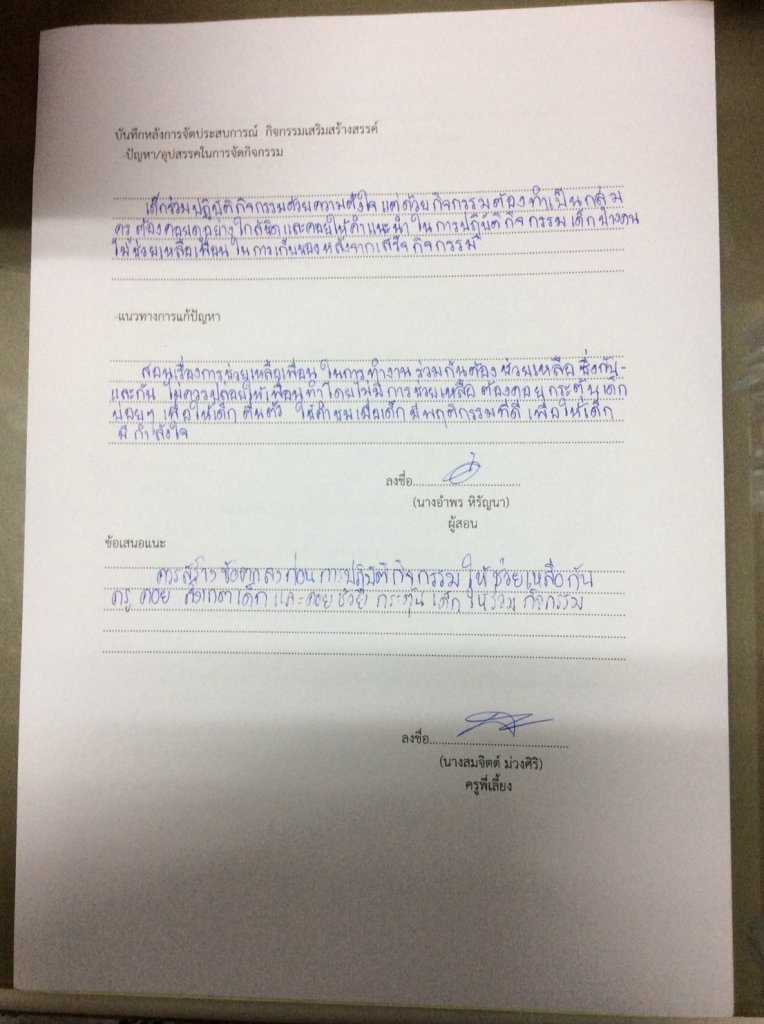 บันทึกหลังการจัดประสบการณ์ กิจกรรมเสริมสร้างสรรค์
-ปัญหา/อุปสรรคในการจัดกิจกรรม
เด็กร่วมปฏิบัติกิจกรรมด้วยความตั้งใจ แต่ด้วยกิจกรรมต้องทำเป็นกลุ่ม
ครูต้องคอยดูอย่างใกล้ชิดและคอยให้คำแนะนำ ในการปฏิบัติกิจกรรม เด็กบางคน
ไม่ช่วยเหลือเพื่อน ในการเก็บของหลังจากเสร็จกิจกรรม
-แนวทางการแก้ปัญหา
สอนเรื่องการช่วยเหลือเพื่อน ในการทำงานร่วมกันต้องช่วยเหลือซึ่งกัน-
และกัน ไม่ควรปล่อยให้เพื่อนทำโดยไม่มีการช่วยเหลือ ต้องคอยกระตุ้นเด็ก
บ่อยๆ เพื่อให้เด็กตื่นตัว ให้คำชมเมื่อเด็กมีพฤติกรรมที่ดี เพื่อให้เด็ก
มีกำลังใจ
ลงชื่อ
(นางอำพร หิรัญนา)
ผู้สอน
ข้อเสนอแนะ
ควรสร้างข้อตกลงก่อนการปฏิบัติกิจกรรม ให้ช่วยเหลือกัน
ครู คอย สังเกตเด็ก และคอยช่วย กระตุ้นเด็ก ให้ร่วมกิจกรรม
ลงชื่อ
(นางสมจิตต์ ม่วงศิริ)
ครูพี่เลี้ยง